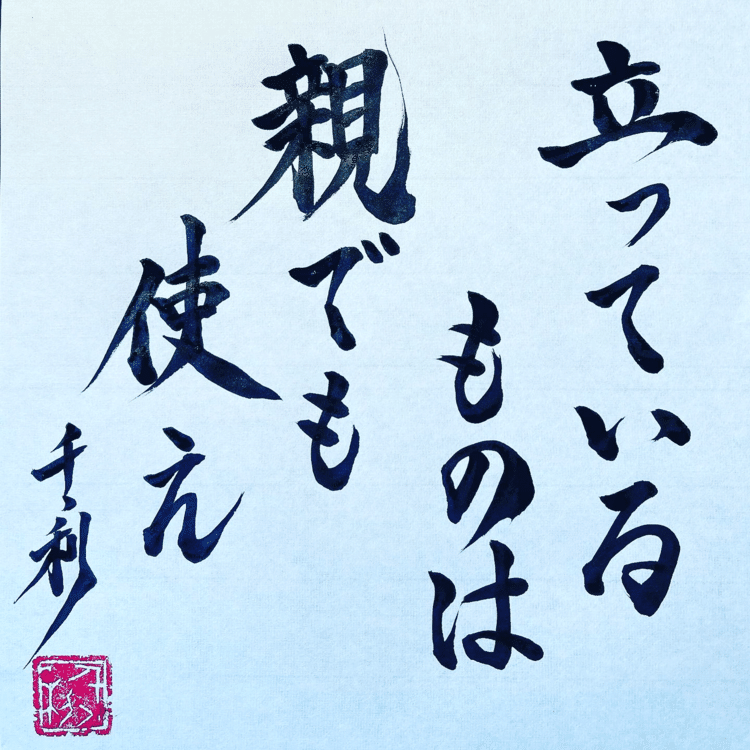 立っている
ものは
親でも
使え
千利